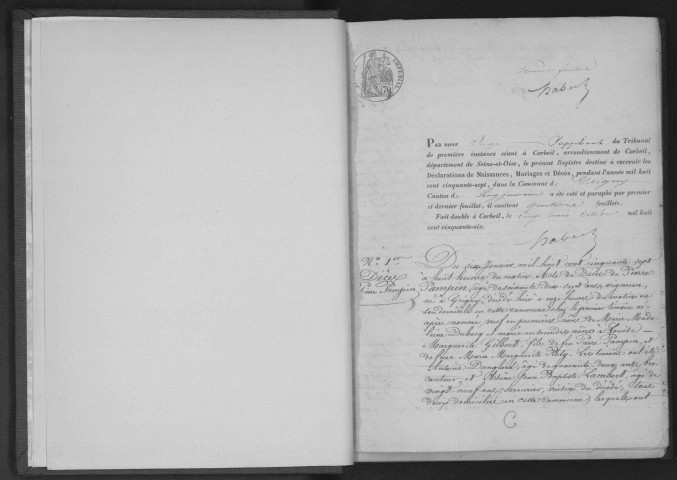 premier feuillet
Habert
PAR NOUS Juge Suppléant du Tribunal
de première instance séant à Corbeil, arrondissement de Corbeil,
département de Seine-et-Oise, le présent Registre destiné à recevoir les
Déclarations de Naissances, Mariages et Décès, pendant l'année mil huit
cent cinquante-sept, dans la Commune de Grigny
Canton de Longjumeau a été coté et paraphé par premier
et dernier feuillet, il contient feuillets.
Fait double à Corbeil, le vingt trois Octobre mil huit
cent cinquante-six.
Habert
N° 1er
Décès
Pierre Pampin
Du six Janvier mil huit cent cinquante sept
à huit heures du matin. Acte de Décès de Pierre
Pampin, âgé de soixante dix sept ans, vigneron,
né à Grigny, décédé hier à onze heures du matin en
son domicile en cette commune, chez le premier témoin ci-
après nommé, veuf en premières noces de Marie Made
leine Dubocq et marié en secondes noces à Louise
Marguerite Gilbert, fils de feu Pierre Pampin, et
de feue Marie Marguerite Les témoins ont été
Antoine Danglard, âgé de quarante deux ans,
et Jean Baptiste Lambert, âgé de
vingt-neuf ans, serrurier, voisin du décédé, tous
deux domiciliés en cette commune; lesquels ont